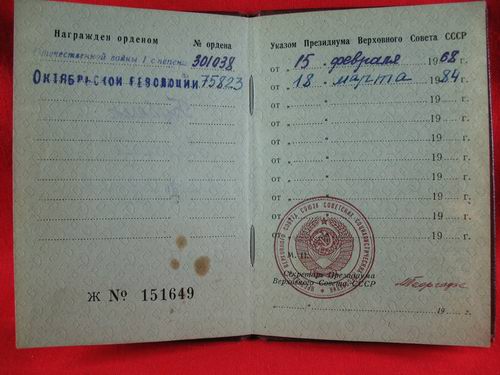 Награжден орденом
№ ордена
Отечественной войны I степени 301038
Октябрьской Революции 75823
Ж № 151649
Указом Президиума Верховного Совета СССР
от „ 15 „ февраля 1968 г.
от „ 18 „ марта 1984 г.
от „ „ 19 г.
от „ „ 19 г.
от „ „ 19 г.
от „ „ 19 г.
от „ „ 19 г.
от „ „ 19 г.
от „ „ 19 г.
от „ 19 г.
М. П.
Секретарь Президиума
Верховного Совета СССР
19 г.